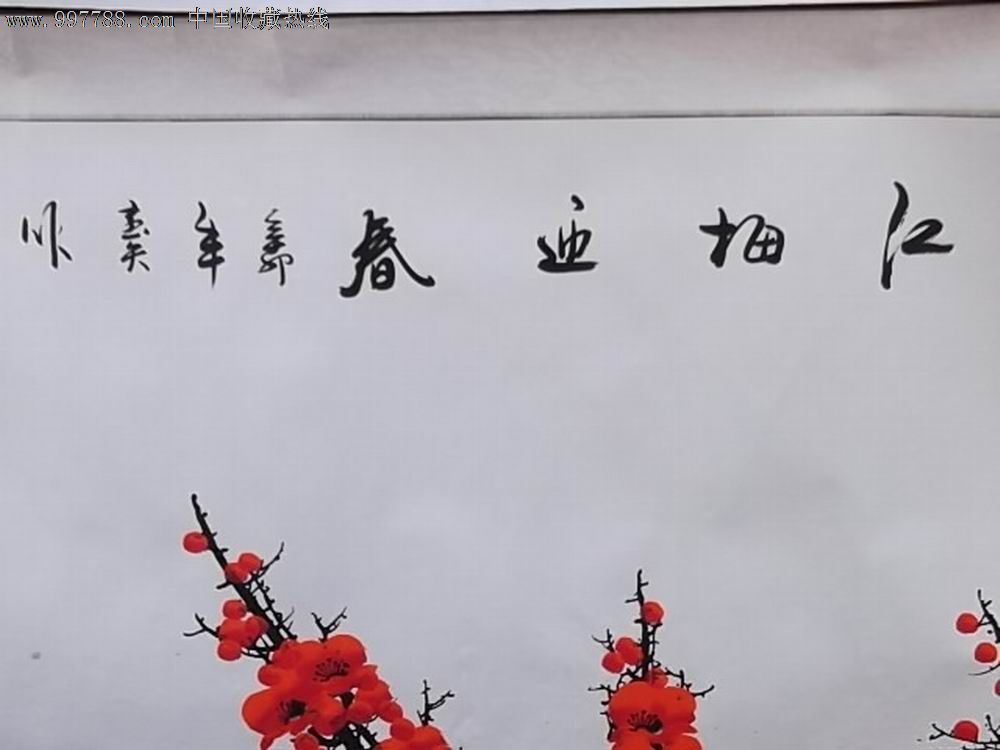 www.997788.com 中国收藏热线
江梅迎春 年